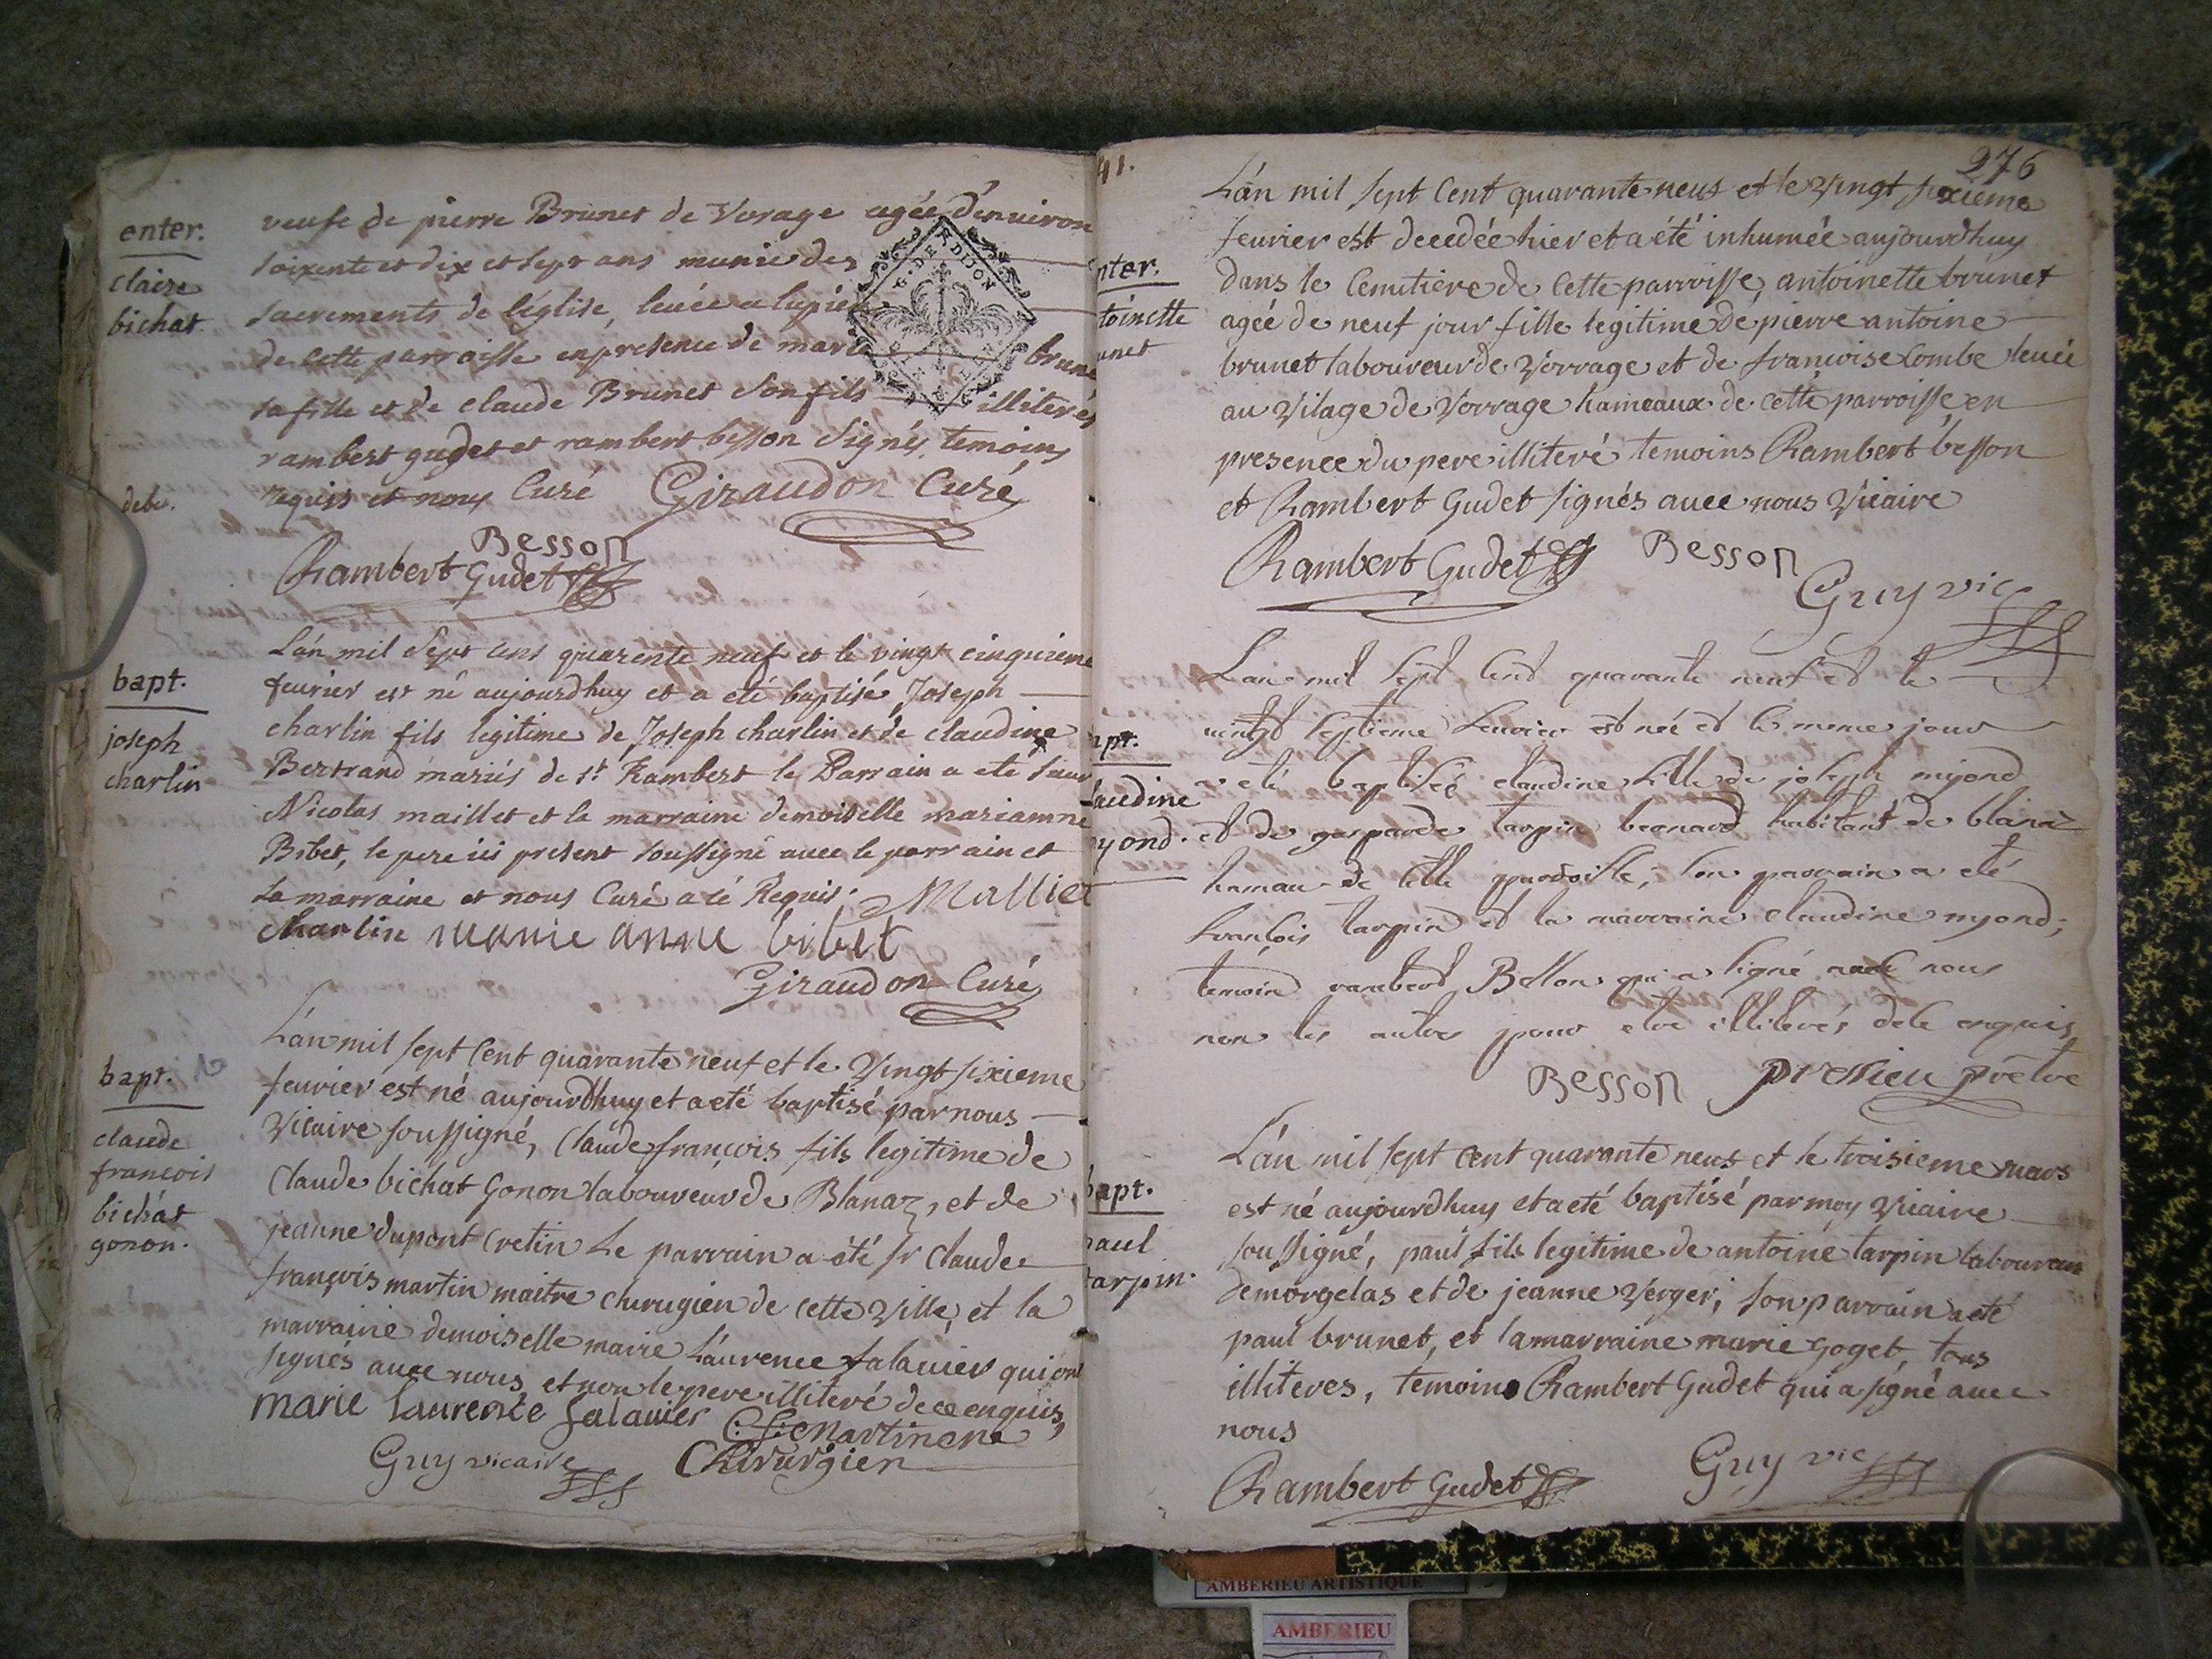 enter.
claire
bichat
veufe de pierre Brunet de Vorage agée d'environ
soixente et dix et sept ans munie des
sacrements de l'église, levée a la pier
de cette parroisse en presence de marie brune
sa fille et de claude Brunet son fils illiterés
rambert gudet et rambert besson signés, temoins
requis et nous Curé Giraudon Curé
Besson
Rambert Gudet
bapt.
joseph
charlin
L'án mil sept cens quarente neuf et le vingt cinquieme
feurier est né aujourdhuy et a eté baptisé Joseph
charlin fils legitime de Joseph charlin et de claudine
Bertrand mariés de st Rambert le Parrain a eté sieur
Nicolas maillet et la marraine demoiselle mariamne
Bibet, le pere ici present soussigné avec le parrain et
la marraine et nous Curé a ce Requis. Malliet
charlin marie anne bibet
Giraudon Curé
bapt.
claude
francois
bichát
gonon.
L'án mil sept Cent quarante neuf et le Vingt sixieme
feuvrier est né aujourdhuy et a eté baptisé par nous
Vicaire soussigné, Claude françois fils legitime de
Claude bichat Gonon laboureur de Blanaz, et de
jeanne dupont Cretin Le parrain a été sr Claude
françois martin maitre chirugien de cette Ville, et la
marraine demoiselle marie Laurence falavier qui ont
signés avec nous, et non le pere illiteré de ce enquis,
marie laurence falavier C: f: Martin me
Guy vicaire Chirurgien
41.
276
nter.
toinette
unet
L'án mil sept Cent quarante neuf et le Vingt sixieme
feurier est decedée hier et a été inhumée aujourdhuy
dans le Cemitiere de Cette parroisse, antoinette brunet
agée de neuf jour fille legitime de pierre antoine
brunet laboureur de Vorrage et de francoise Combe levée
au Vilage de Vorrage hameaux de cette parroisse en
presence du pere illiteré temoins Rambert besson
et Rambert Gudet signés avec nous Vicaire
Rambert Gudet Besson
Guy vic
apt.
laudine
yond.
L'an mil sept Cent quarante neuf et le
vingt septieme fevrier est née et le meme jour
a eté baptisée claudine fille de joseph myond
et de gasparde tarpin bernard habitant de blanaz
hamau de cette parroisse, son parrain a eté
françois tarpin et la marraine claudine myond;
temoin rambert Besson qui a signé avec nous
non les autres pour etre illiterés de ce enquis
Besson pressieu prêtre
bapt.
paul
tarpin.
L'án mil sept Cent quarante neuf et le troisieme mars
est né aujourdhuy et a eté baptisé par moy Vicaire
soussigné, paul fils legitime de antoine tarpin laboureur
de morgelas et de jeanne Verger; son parrain a eté
paul brunet, et la marraine marie goget, tous
illiteres, temoins Rambert Gudet qui a signé avec
nous
Rambert Gudet Guy vic
AMBERIEU ARTISTIQUE
AMBERIEU